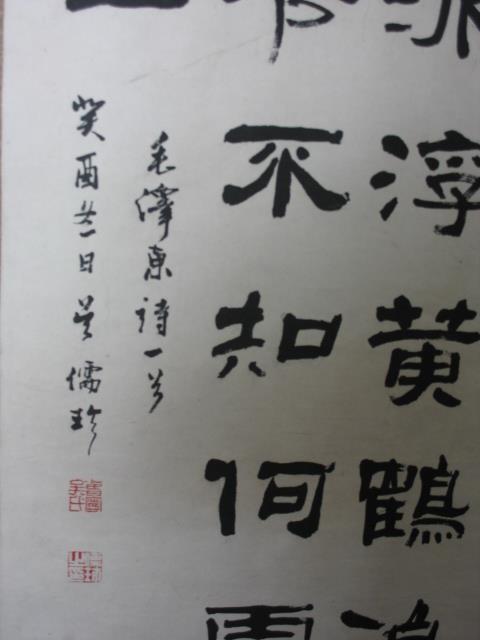 派浮黄鶴浪
令不知何處
毛澤東詩一首
癸酉日吴儒珍